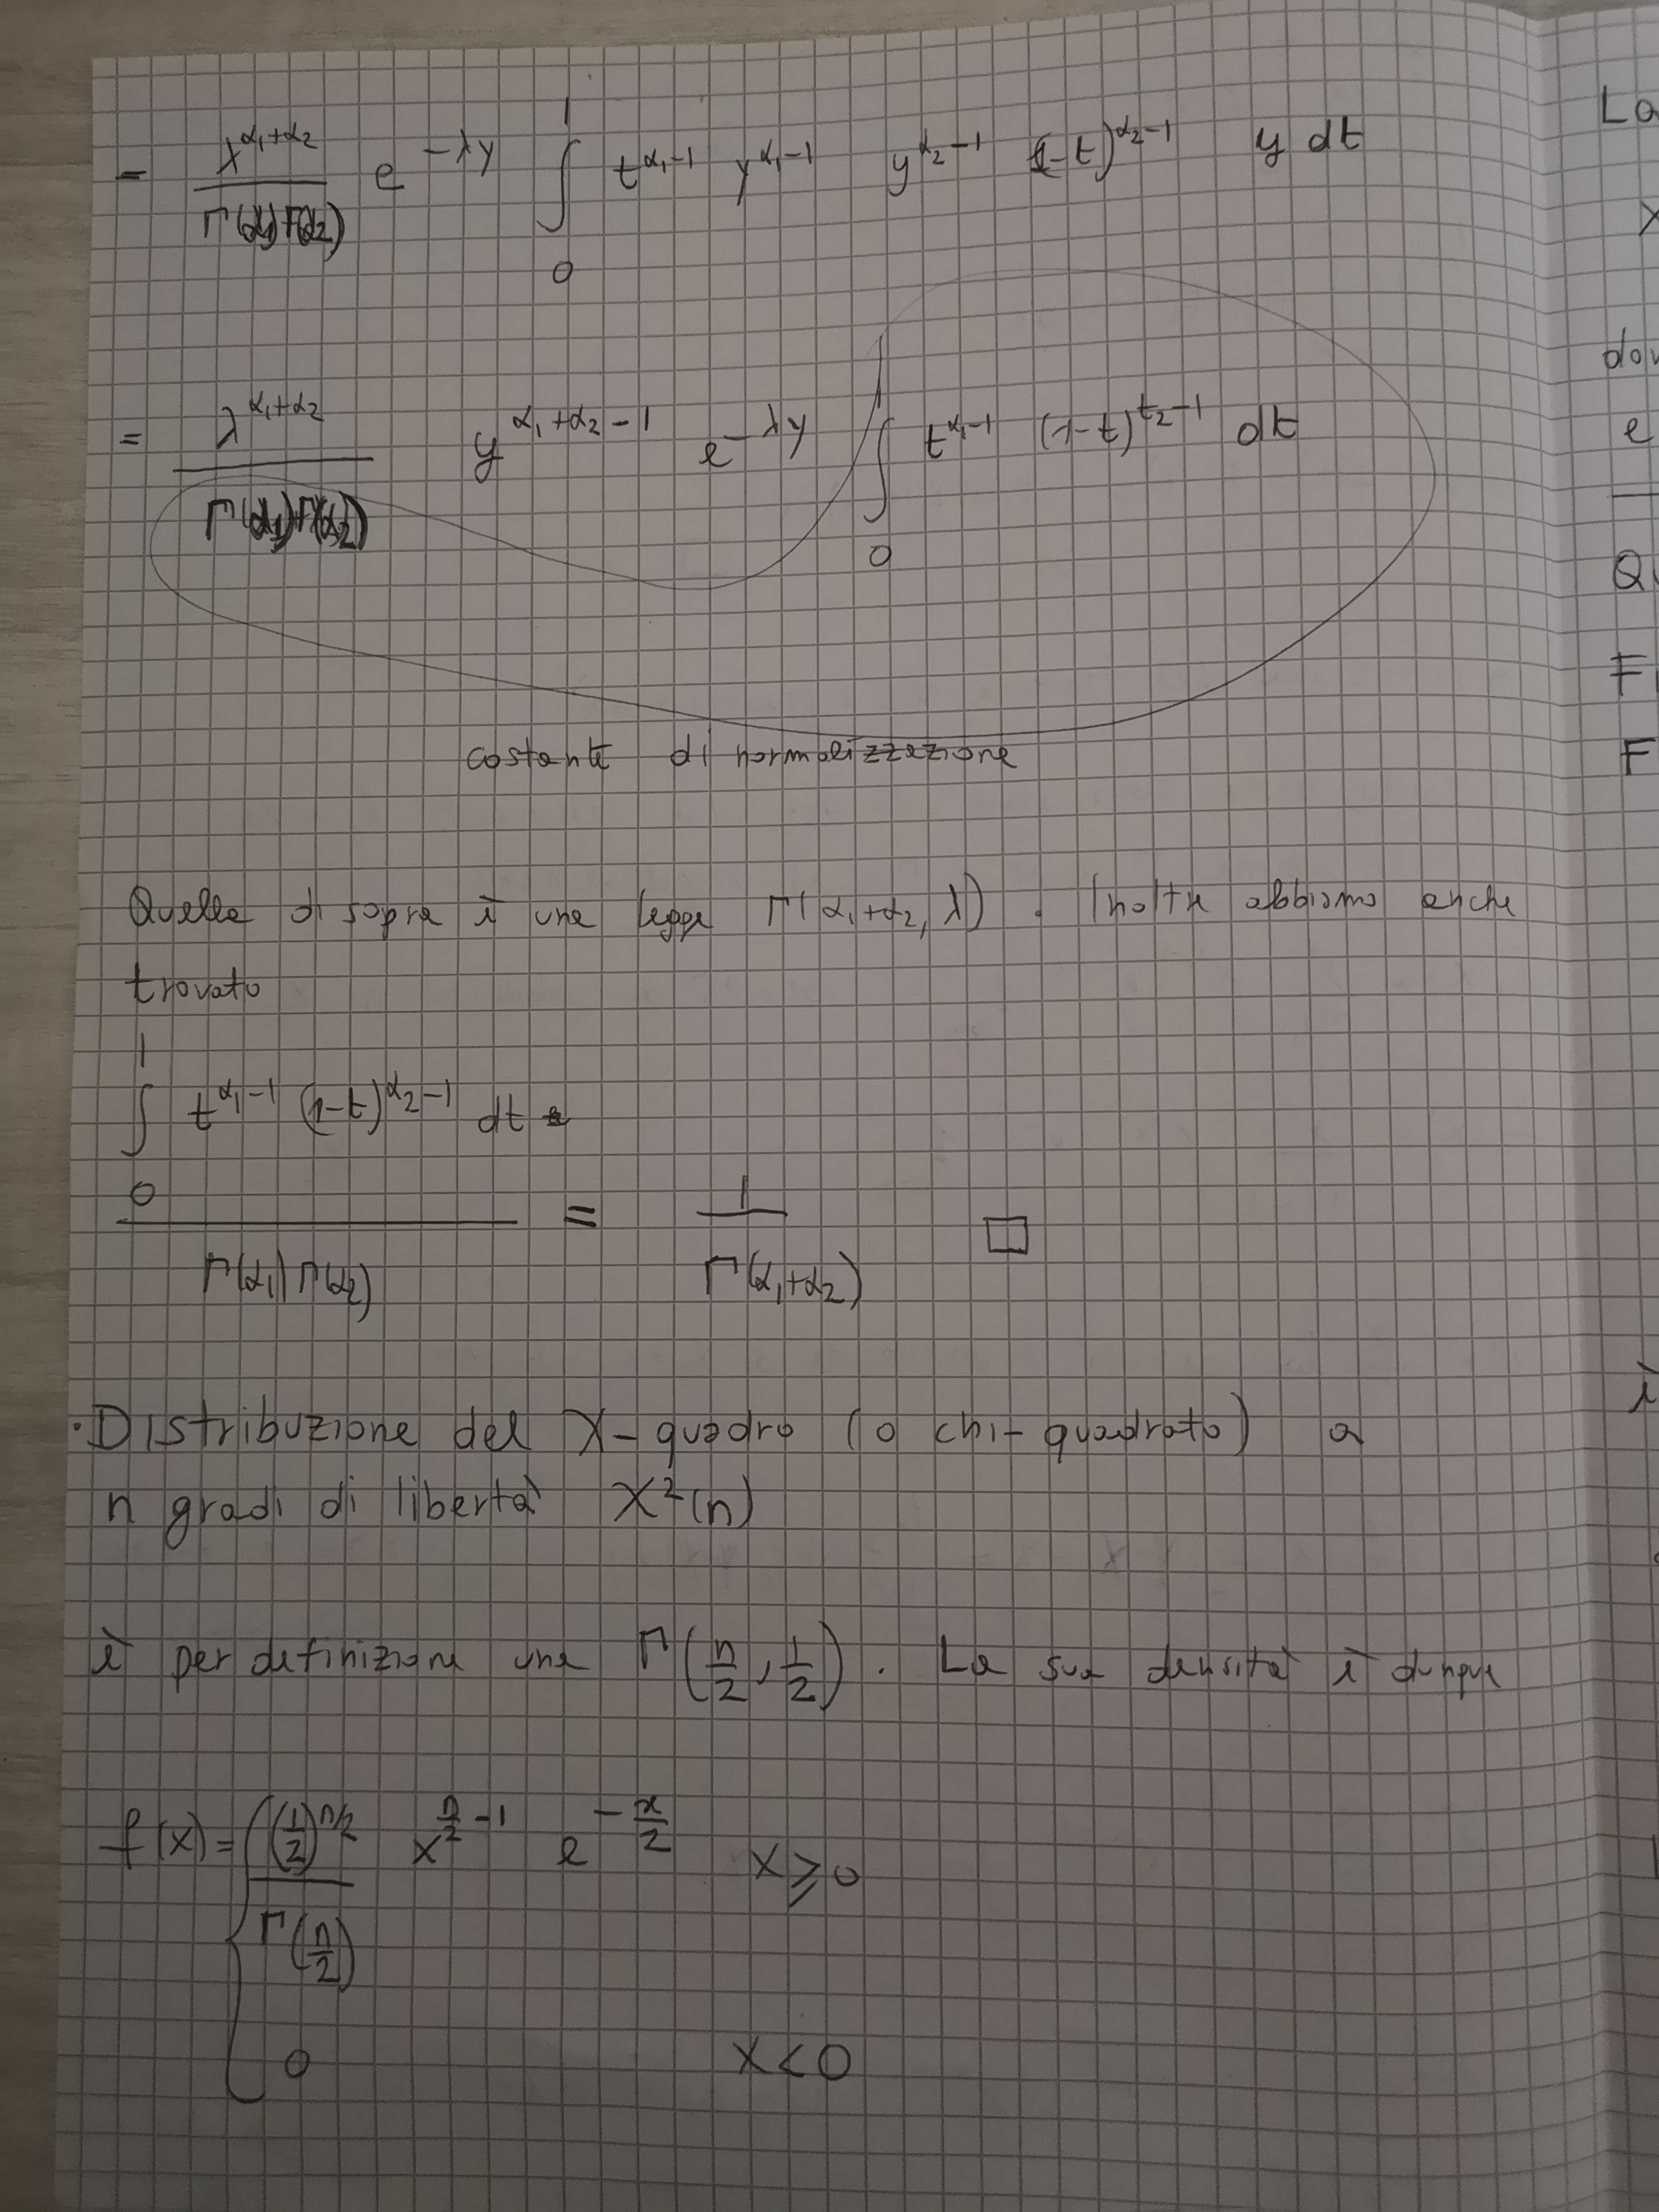 = λ^{α₁+α₂} / Γ(α₁)Γ(α₂) e^{-λy} ∫₀¹ t^{α₁-1} y^{α₁-1} y^{α₂-1} (1-t)^{α₂-1} y dt
= λ^{α₁+α₂} / Γ(α₁)Γ(α₂) y^{α₁+α₂-1} e^{-λy} ∫₀¹ t^{α₁-1} (1-t)^{t₂-1} dt
costante di normalizzazione
Quella di sopra è una legge Γ(α₁+α₂, λ). Inoltre abbiamo anche
trovato
∫₀¹ t^{α₁-1} (1-t)^{α₂-1} dt / Γ(α₁)Γ(α₂) = 1 / Γ(α₁+α₂) □
·Distribuzione del X-quadro (o chi-quadrato) a
n gradi di libertà X²(n)
è per definizione una Γ(n/2, 1/2). La sua densità è dunque
f(x) = { (1/2)^{n/2} / Γ(n/2) x^{n/2-1} e^{-x/2} x ⩾ 0
0 x < 0
La
x
e
F